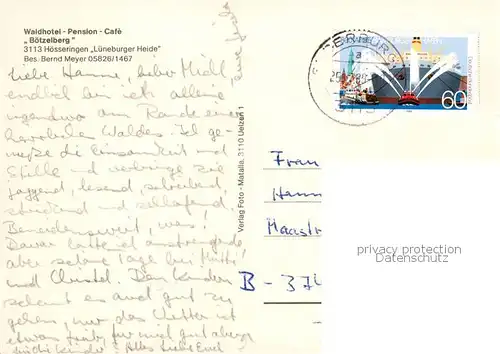 Waldhotel - Pension - Café
„Bötzelberg"
3113 Hösseringen „Lüneburger Heide"
Bes. Bernd Meyer 05826/1467
Liebe Hanne, lieber Michl,
endlich bin ich alleine
irgendwo am Rande eines
Waldes. Ich ge-
nieße die Einsamkeit und
Stille und verbringe sie
joggend, lesend, schreibend,
und schlafend,
Beneidenswert, was?
Davor hatte ich anstrengende,
aber schöne Tage bei Mutti
und Christel. Den Kindern
scheint es auch gut zu
gehen, nur das Wetter ist
etwas für mich gut aber
für die Kinder? Alles Liebe Euch
Verlag Foto - Matalla, 3110 Uelzen 1
60
Frau
Hann
Maastr
B - 374
privacy protection
Datenschutz